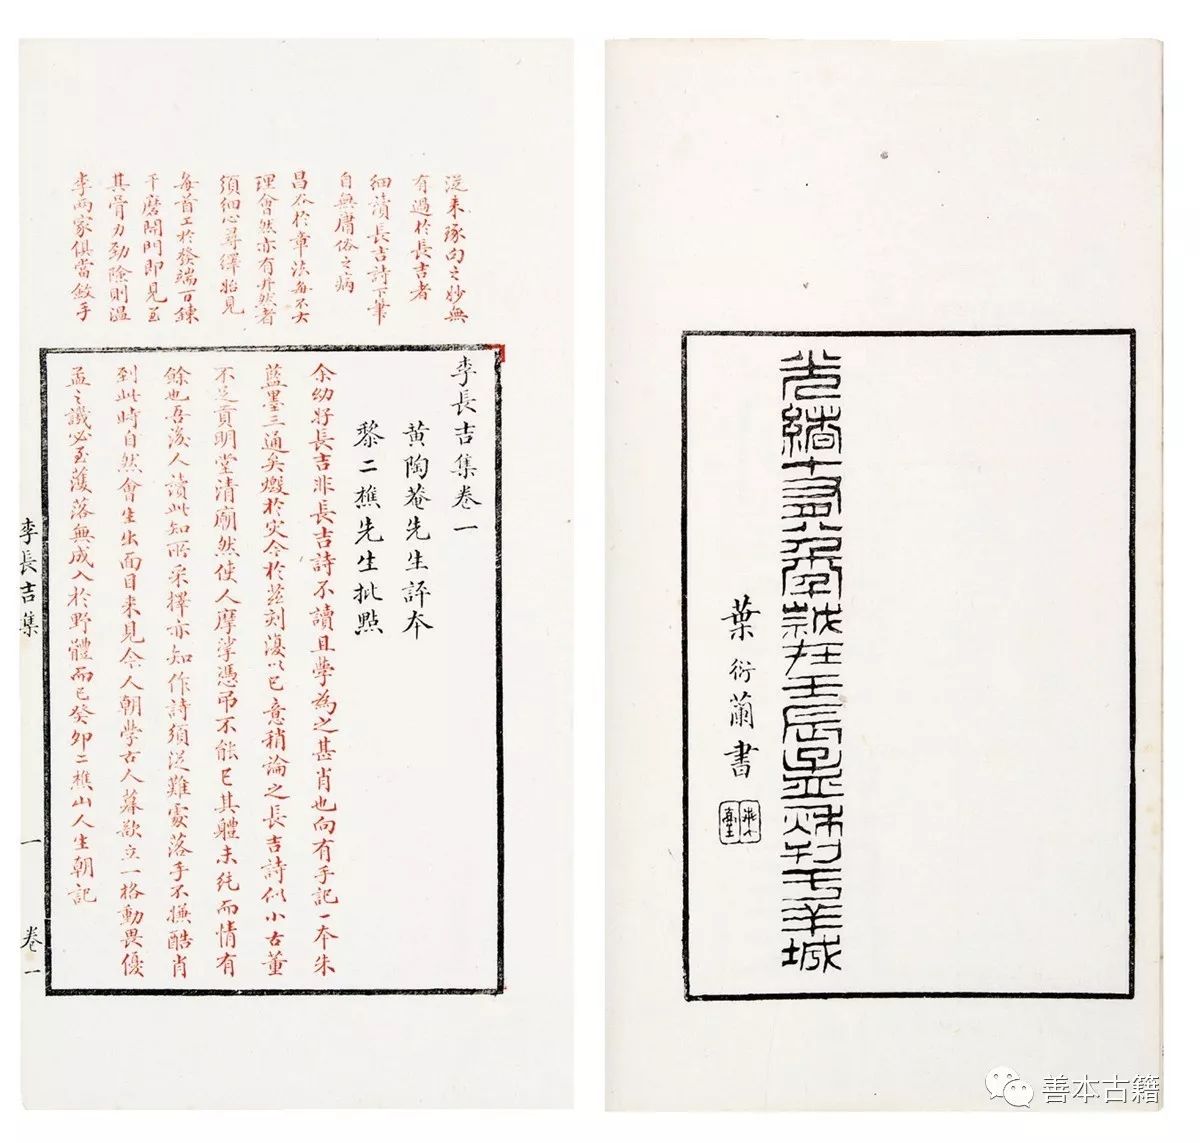 光緒十有八年歲在壬辰孟秋刊于羊城
葉衍蘭書
從来琢句之妙無
有過於長吉者
細讀長吉詩下筆
自無庸俗之病
昌谷於章法每不大
理會然亦有井然者
須細心尋繹始見
每首工於發端百鍊
千磨開門即見至
其骨力勁險則溫
李兩家俱當斂手
李長吉集卷一
黄陶菴先生評本
黎二樵先生批點
余幼好長吉非長吉詩不讀且學為之甚肖也向有手記一本朱
藍墨三通矣燬於灾今於兹刻復以己意稍論之長吉詩似小古董
不足貢明堂清廟然使人摩挲憑弔不能已其體未純而情有
餘也吾後人讀此知所采擇亦知作詩須從難處落手不嫌酷肖
到此時自然會生出面目来見今人朝學古人暮欲立一格動畏優
孟之譏必至蒦落無成入於野體而已癸卯二樵山人生朝記
李長吉集
一
卷一
善本古籍